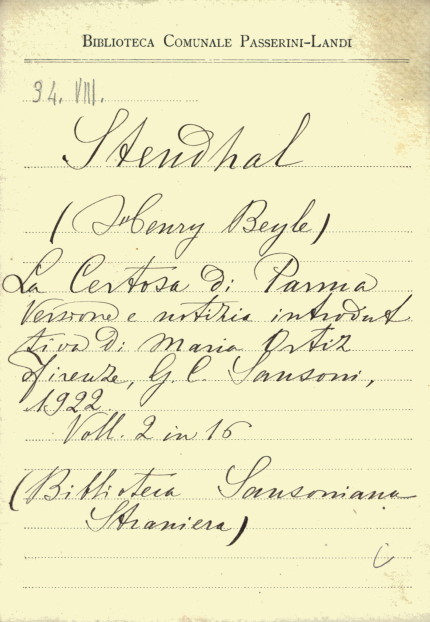 BIBLIOTECA COMUNALE PASSERINI-LANDI
34. VIII.
Stendhal
(Henry Beyle)
La Certosa di Parma
Versione e notizia introdut
tiva di Maria Ortiz
Firenze, G. C. Sansoni,
1922.
Voll. 2 in 16
(Biblioteca Sansoniana
Straniera)